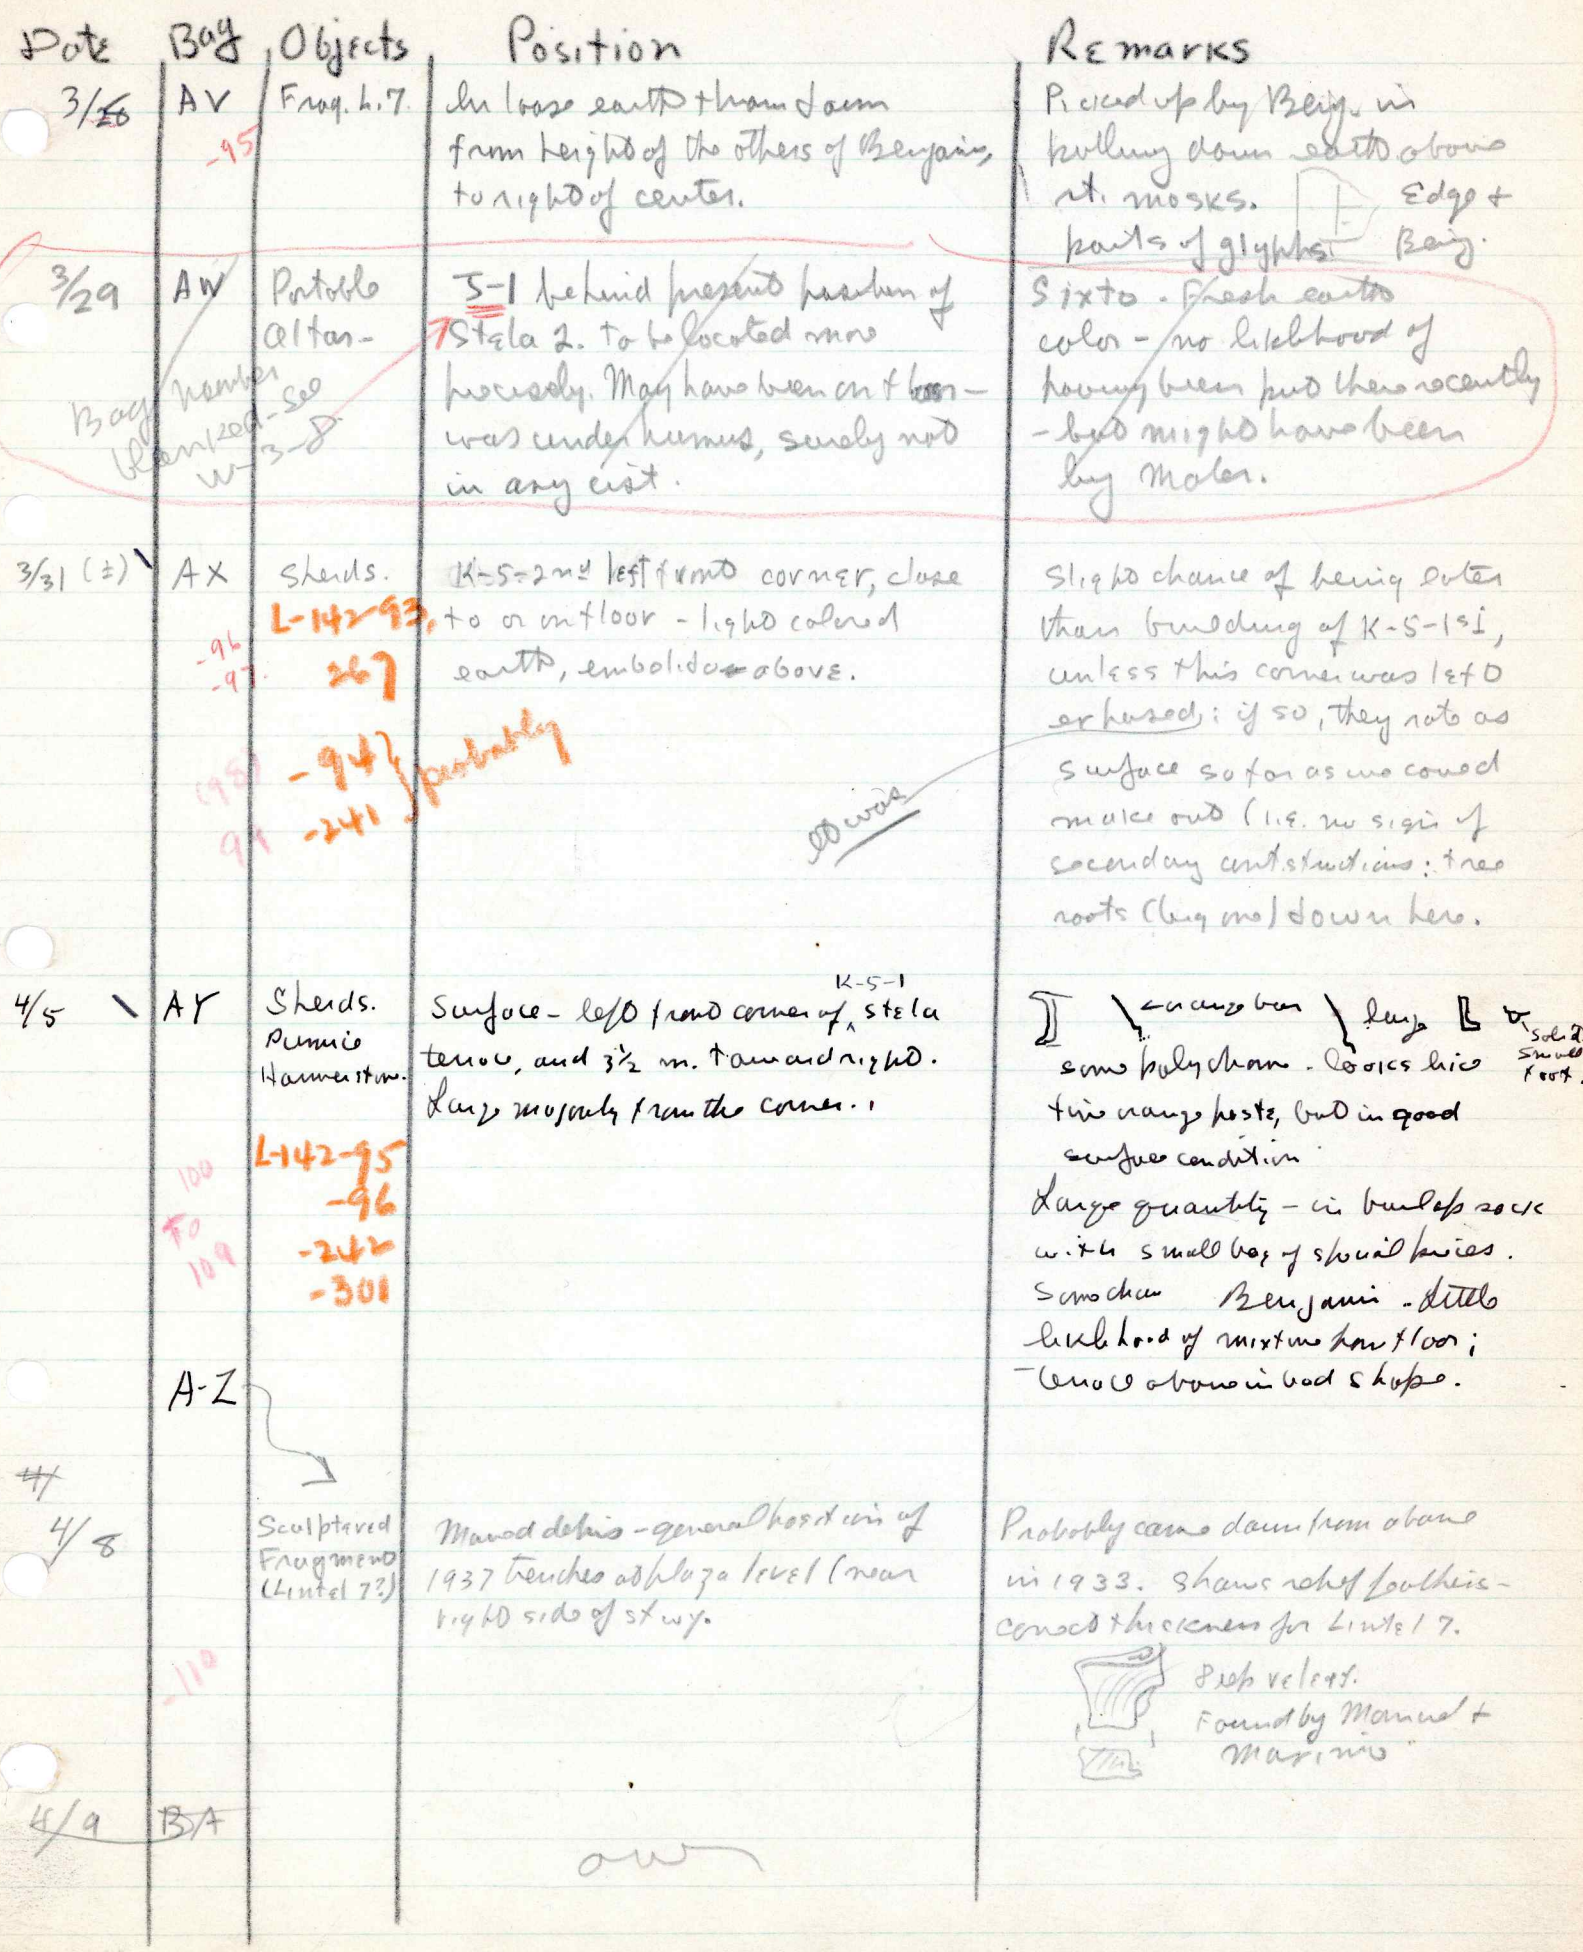 Date Bag Objects Position Remarks
3/28 AV Frag. L. 7. In loose earth thrown down
from height of the others of Benjamin,
to right of center.
-95
Picked up by Benj. in
pulling down earth above
rt. masks. Edge +
parts of glyphs. Benj.
3/29 AW Portable
Altar-
J-1 behind present position of
Stela 2. To be located more
precisely. May have been on floor-
was under humus, surely not
in any cist.
Bag number
blanked-see
W-3-8
Sixto. Fresh earth
color - no liklihood of
having been put there recently
- but might have been
by Maler.
3/31 (±) AX Sherds.
L-142-93,
267
-94 } probably
-241
-96
-97
(98)
99
K-5-2nd left front corner, close
to or on floor - light colored
earth, embolido above.
Slight chance of being later
than building of K-5-1st,
unless this corner was left
exposed: if so, they rate as
surface so far as we could
make out (i.e. no sign of
secondary contstructions: tree
roots (big one) down here.
it was
4/5 AY Sherds.
Pumice
Hammerstone.
L-142-95
-96
-242
-301
100
to
109
K-5-1
Surface - left front corner of ^ stela
terrace, and 3½ m. toward right.
Large majority from the corner.
orange bar large solid
small
foot.
some polychrome - looks like
fine orange paste, but in good
surface condition
Large quantity - in burlap sack
with small bag of special pieces.
Benjamin. Little
liklihood of mixture from floor;
terrace above in bad shape.
A-Z
4/
4/8 Sculptured
Fragment
(Lintel 7?)
-110
Mound debris - general position of
1937 trenches at plaza level (near
right side of stwy.
Probably came down from above
in 1933. Shows relief feathers-
correct thickness for Lintel 7.
Deep relief.
Found by Manuel +
4/9 BA